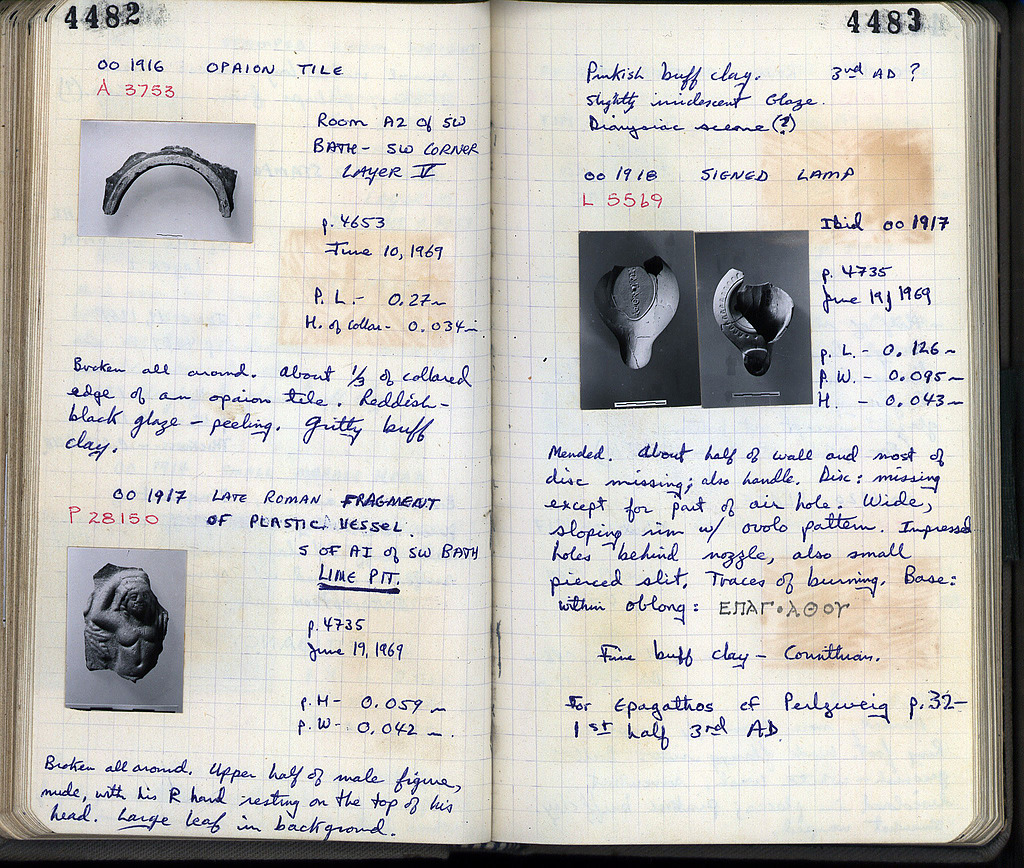 4482
OO 1916 OPAION TILE
A 3753
ROOM A2 Of SW
BATH - SW CORNER
LAYER V
p. 4653
June 10, 1969
P. L. - 0.27 m
H. of collar - 0.034 m
Broken all around. About 1/3 of collared
edge of an opaion tile. Reddish-
black glaze - peeling. Gritty buff
clay.
OO 1917 LATE ROMAN FRAGMENT
P 28150 OF PLASTIC VESSEL.
S OF A1 Of SW BATH
LIME PIT.
p. 4735
June 19, 1969
p. H - 0.059 m
p. W - 0.042 m.
Broken all around. Upper half of male figure,
nude, with his R hand resting on the top of his
head. Large leaf in background.
4483
Pinkish buff clay. 3rd AD ?
Slightly iridescent Glaze.
Dionysiac scene (?)
OO 1918 SIGNED LAMP
L 5569
Ibid OO 1917
p. 4735
June 19, 1969
p. L. - 0.126 m
P. W. - 0.095 m
H. - 0.043 m
Mended. About half of wall and most of
disc missing; also handle. Disc: missing
except for part of air hole. Wide,
sloping rim w/ ovolo pattern. Impressed
holes behind nozzle, also small
pierced slit. Traces of burning. Base:
within oblong: ΕΠΑΓ•ΑΘΟΥ
Fine buff clay - Corinthian.
For Epagathos cf Perlzweig p. 32-
1st half 3rd AD